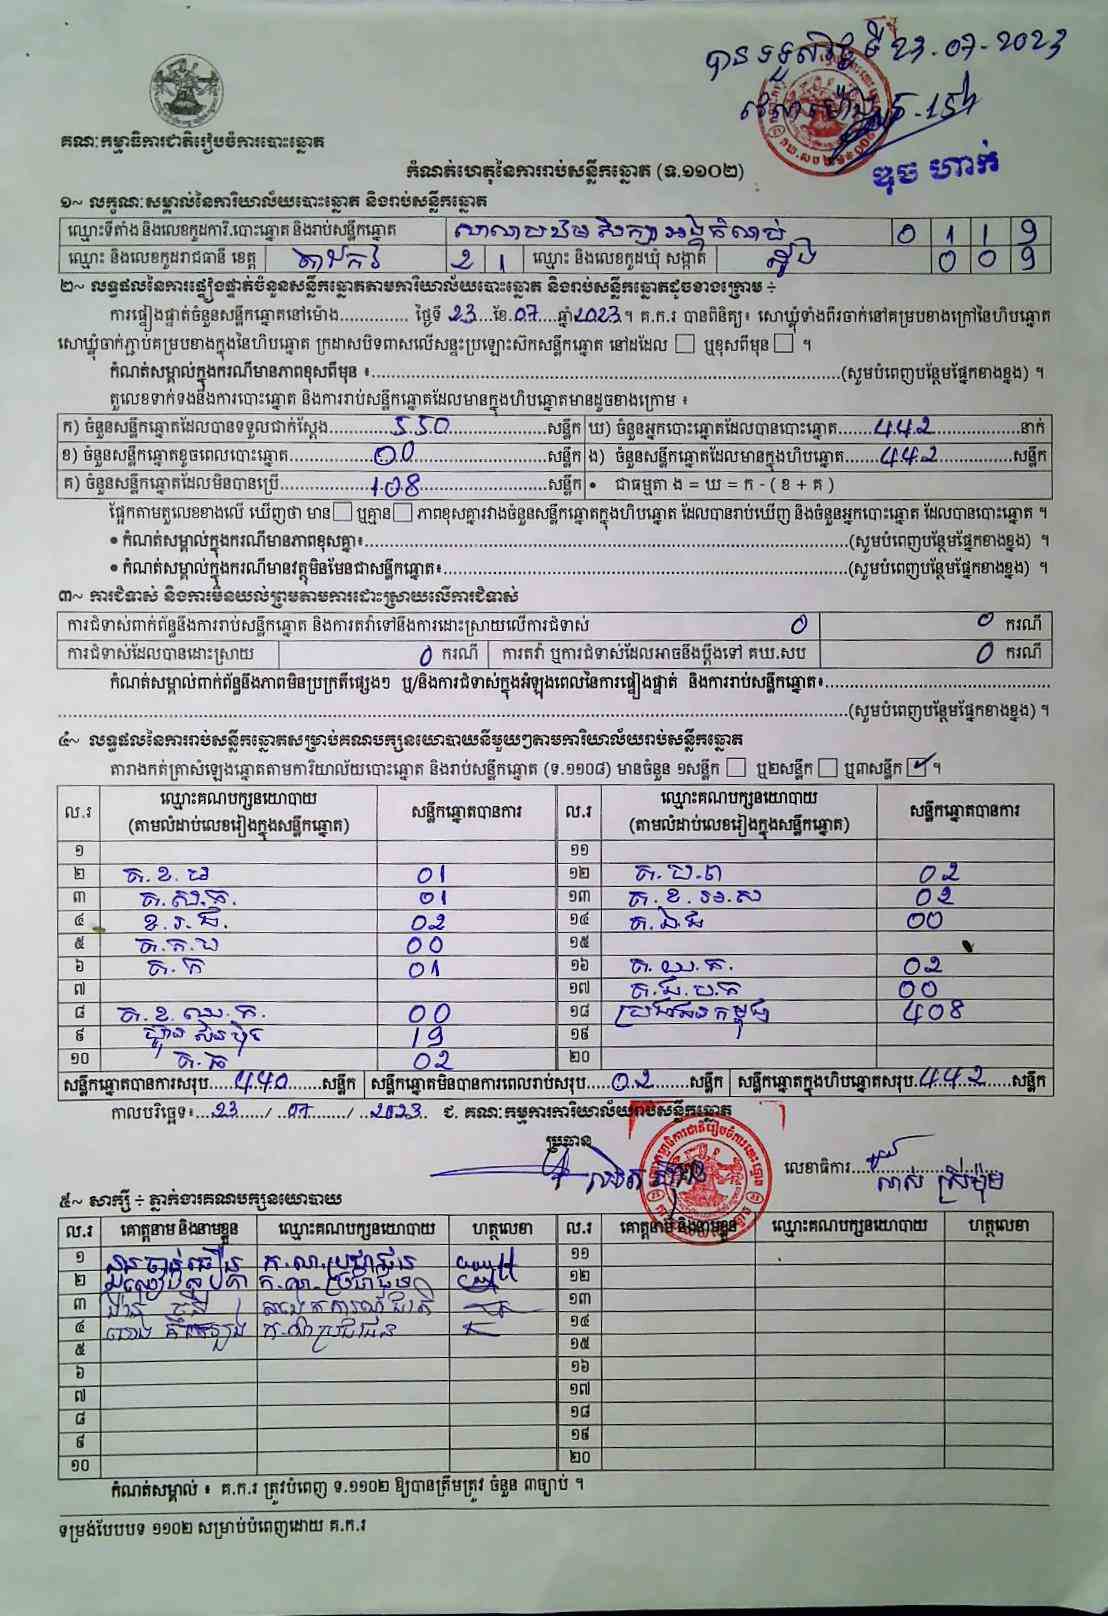 បានទទួលថ្ងៃទី 23-07-2023
គណៈកម្មាធិការជាតិរៀបចំការបោះឆ្នោត
កំណត់ហេតុនៃការរាប់សន្លឹកឆ្នោត (ទ.១១០២)
១~ លក្ខណៈសម្គាល់នៃការិយាល័យបោះឆ្នោត និងរាប់សន្លឹកឆ្នោត
ឈ្មោះទីតាំង និងលេខកូដការិ.បោះឆ្នោត និងរាប់សន្លឹកឆ្នោត 0 1 1 9
ឈ្មោះ និងលេខកូដរាជធានី ខេត្ត តាកែវ 2 1 ឈ្មោះ និងលេខកូដឃុំ សង្កាត់ 0 0 9
២~ លទ្ធផលនៃការផ្ទៀងផ្ទាត់ចំនួនសន្លឹកឆ្នោតតាមការិយាល័យបោះឆ្នោត និងរាប់សន្លឹកឆ្នោតដូចខាងក្រោម ÷
ការផ្ទៀងផ្ទាត់ចំនួនសន្លឹកឆ្នោតនៅម៉ោង.............. ថ្ងៃទី 23 ...ខែ. 07 ....ឆ្នាំ 2023 ។ គ.ក.រ បានពិនិត្យ៖ សោឃ្លុំទាំងពីរចាក់នៅគម្របខាងក្រៅនៃហិបឆ្នោត
សោឃ្លុំចាក់ភ្ជាប់គម្របខាងក្នុងនៃហិបឆ្នោត ក្រដាសបិទពាសលើសន្ទះប្រឡោះស៊កសន្លឹកឆ្នោត នៅដដែល ☐ ឬខុសពីមុន ☐ ។
កំណត់សម្គាល់ក្នុងករណីមានភាពខុសពីមុន ៖.......................................(សូមបំពេញបន្ថែមផ្នែកខាងខ្នង) ។
តួលេខទាក់ទងនឹងការបោះឆ្នោត និងការរាប់សន្លឹកឆ្នោតដែលមានក្នុងហិបឆ្នោតមានដូចខាងក្រោម ៖
ក) ចំនួនសន្លឹកឆ្នោតដែលបានទទួលជាក់ស្ដែង........ 550 ........សន្លឹក ឃ) ចំនួនអ្នកបោះឆ្នោតដែលបានបោះឆ្នោត...... 442 ......នាក់
ខ) ចំនួនសន្លឹកឆ្នោតខូចពេលបោះឆ្នោត........ 00 ........សន្លឹក ង) ចំនួនសន្លឹកឆ្នោតដែលមានក្នុងហិបឆ្នោត...... 442 ......សន្លឹក
គ) ចំនួនសន្លឹកឆ្នោតដែលមិនបានប្រើ........ 108 ........សន្លឹក • ជាធម្មតា ង = ឃ = ក - ( ខ + គ )
ផ្អែកតាមតួលេខខាងលើ ឃើញថា មាន ☐ ឬគ្មាន ☐ ភាពខុសគ្នារវាងចំនួនសន្លឹកឆ្នោតក្នុងហិបឆ្នោត ដែលបានរាប់ឃើញ និងចំនួនអ្នកបោះឆ្នោត ដែលបានបោះឆ្នោត ។
• កំណត់សម្គាល់ក្នុងករណីមានភាពខុសគ្នា៖.......................................(សូមបំពេញបន្ថែមផ្នែកខាងខ្នង) ។
• កំណត់សម្គាល់ក្នុងករណីមានវត្ថុមិនមែនជាសន្លឹកឆ្នោត៖.......................................(សូមបំពេញបន្ថែមផ្នែកខាងខ្នង) ។
៣~ ការជំទាស់ និងការមិនយល់ព្រមតាមការដោះស្រាយលើការជំទាស់
ការជំទាស់ពាក់ព័ន្ធនឹងការរាប់សន្លឹកឆ្នោត និងការតវ៉ាទៅនឹងការដោះស្រាយលើការជំទាស់ 0 0 ករណី
ការជំទាស់ដែលបានដោះស្រាយ 0 ករណី ការតវ៉ា ឬការជំទាស់ដែលអាចនឹងប្ដឹងទៅ គឃ.សប 0 ករណី
កំណត់សម្គាល់ពាក់ព័ន្ធនឹងភាពមិនប្រក្រតីផ្សេងៗ ឬ/និងការជំទាស់ក្នុងអំឡុងពេលនៃការផ្ទៀងផ្ទាត់ និងការរាប់សន្លឹកឆ្នោត៖..............................
.......................................(សូមបំពេញបន្ថែមផ្នែកខាងខ្នង) ។
៤~ លទ្ធផលនៃការរាប់សន្លឹកឆ្នោតសម្រាប់គណបក្សនយោបាយនីមួយៗតាមការិយាល័យរាប់សន្លឹកឆ្នោត
តារាងកត់ត្រាសំឡេងឆ្នោតតាមការិយាល័យបោះឆ្នោត និងរាប់សន្លឹកឆ្នោត (ទ.១១០៨) មានចំនួន ១សន្លឹក ☐ ឬ២សន្លឹក ☐ ឬ៣សន្លឹក ☑ ។
ល.រ ឈ្មោះគណបក្សនយោបាយ (តាមលំដាប់លេខរៀងក្នុងសន្លឹកឆ្នោត) សន្លឹកឆ្នោតបានការ ល.រ ឈ្មោះគណបក្សនយោបាយ (តាមលំដាប់លេខរៀងក្នុងសន្លឹកឆ្នោត) សន្លឹកឆ្នោតបានការ
១ ១១
២ គ.ខ.ម 01 ១២ គ.ប.ព 02
៣ គ.ស.ក. 01 ១៣ គ.ខ.រ.ស 02
៤ ខ.រ.ជ. 02 ១៤ គ.ឯ.ជ 00
៥ គ.ក.ប 00 ១៥
៦ គ.ក 01 ១៦ គ.ឈ.គ. 02
៧ ១៧ គ.ជ.ប.ក 00
៨ គ.ខ.ឈ.គ. 00 ១៨ ប្រជាជនកម្ពុជា 408
៩ ហ៊្វុនស៊ិនប៉ិច 19 ១៩
១០ គ.ធ 02 ២០
សន្លឹកឆ្នោតបានការសរុប..... 440 ......សន្លឹក សន្លឹកឆ្នោតមិនបានការពេលរាប់សរុប..... 02 ......សន្លឹក សន្លឹកឆ្នោតក្នុងហិបឆ្នោតសរុប. 442 .....សន្លឹក
កាលបរិច្ឆេទ៖... 23 ..../ .. 07 ......../ .. 2023 . ជ. គណៈកម្មការការិយាល័យរាប់សន្លឹកឆ្នោត
ប្រធាន លេខាធិការ
៥~ សាក្សី ÷ ភ្នាក់ងារគណបក្សនយោបាយ
ល.រ គោត្តនាម និងនាមខ្លួន ឈ្មោះគណបក្សនយោបាយ ហត្ថលេខា ល.រ គោត្តនាម និងនាមខ្លួន ឈ្មោះគណបក្សនយោបាយ ហត្ថលេខា
១ គ.ណ.ប្រជាជន ១១
២ គ.ណ.ប្រជាជន ១២
៣ ១៣
៤ គ.ណ.ប្រជាជន ១៤
៥ ១៥
៦ ១៦
៧ ១៧
៨ ១៨
៩ ១៩
១០ ២០
កំណត់សម្គាល់ ៖ គ.ក.រ ត្រូវបំពេញ ទ.១១០២ ឱ្យបានត្រឹមត្រូវ ចំនួន ៣ច្បាប់ ។
ទម្រង់បែបបទ ១១០២ សម្រាប់បំពេញដោយ គ.ក.រ